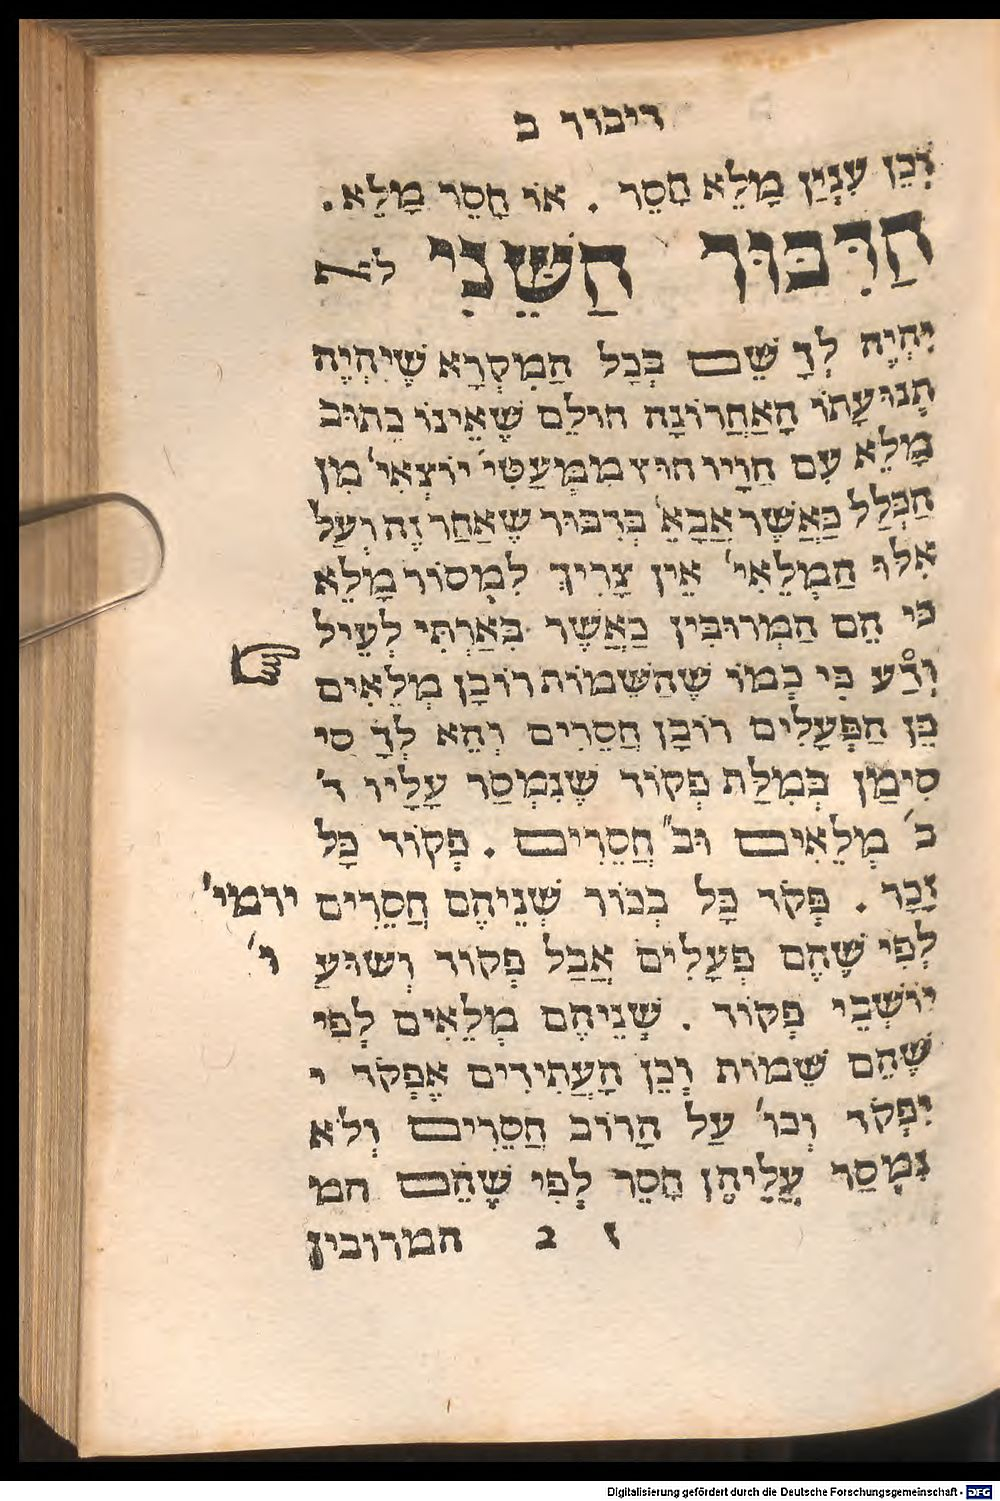 דיבור ב
וְכֵן עִנְיַן מָלֵא חָסֵר . אוֹ חָסֵר מָלֵא.
הַדִּבּוּר הַשֵּׁנִי לֹא
יִהְיֶה לְךָ שֵׁם בְּכָל הַמִּקְרָא שֶׁיִּהְיֶה
תְנוּעָתוֹ הָאַחֲרוֹנָה חוֹלֵם שֶׁאֵינוֹ כְתוּב
מָלֵא עִם הַוָיו חוּץ מִמְּעַטִּי' יוֹצְאִי' מִן
הַכְּלָל כַּאֲשֶׁר אֲבָאֵ' בְּדִבּוּר שֶׁאַחַר זֶה וְעַל
אִלּוּ הַמְלֵאִי' אֵין צָרִיךְ לִמְסוֹר מָלֵא
כִּי הֵם הַמְרוּבִּין כַּאֲשֶׁר בֵּאַרְתִּי לְעֵיל
וְדַע כִּי כְמוֹ שֶׁהַשֵּׁמוֹת רוֹבָן מְלֵאִים
כֵּן הַפְּעָלִים רוֹבָן חֲסֵרִים וְהֵא לְךָ סִי
סִימַן בְּמִלַּת פְּקוֹד שֶׁנִּמְסַר עָלָיו ד'
ב' מְלֵאִים וּב' חֲסֵרִים . פְּקוֹד כָּל
זָכָר . פְּקֹד כָּל בְּכוֹר שְׁנֵיהֶם חֲסֵרִים ירמי'
לְפִי שֶׁהֶם פְּעָלִים אֲבָל פְּקוֹד וְשׁוֹעַ נ'
יוֹשְׁבֵי פְּקוֹד . שְׁנֵיהֶם מְלֵאִים לְפִי
שֶׁהֵם שֵׁמוֹת וְכֵן הָעֲתִידִים אֶפְקֹד י
יִפְקֹד וְכוּ' עַל הָרוֹב חֲסֵרִים וְלֹא
נִמְסַר עֲלֵיהֶן חָסֵר לְפִי שֶׁהֵם המ
ז 2 המרובין
Digitalisierung gefördert durch die Deutsche Forschungsgemeinschaft - DFG